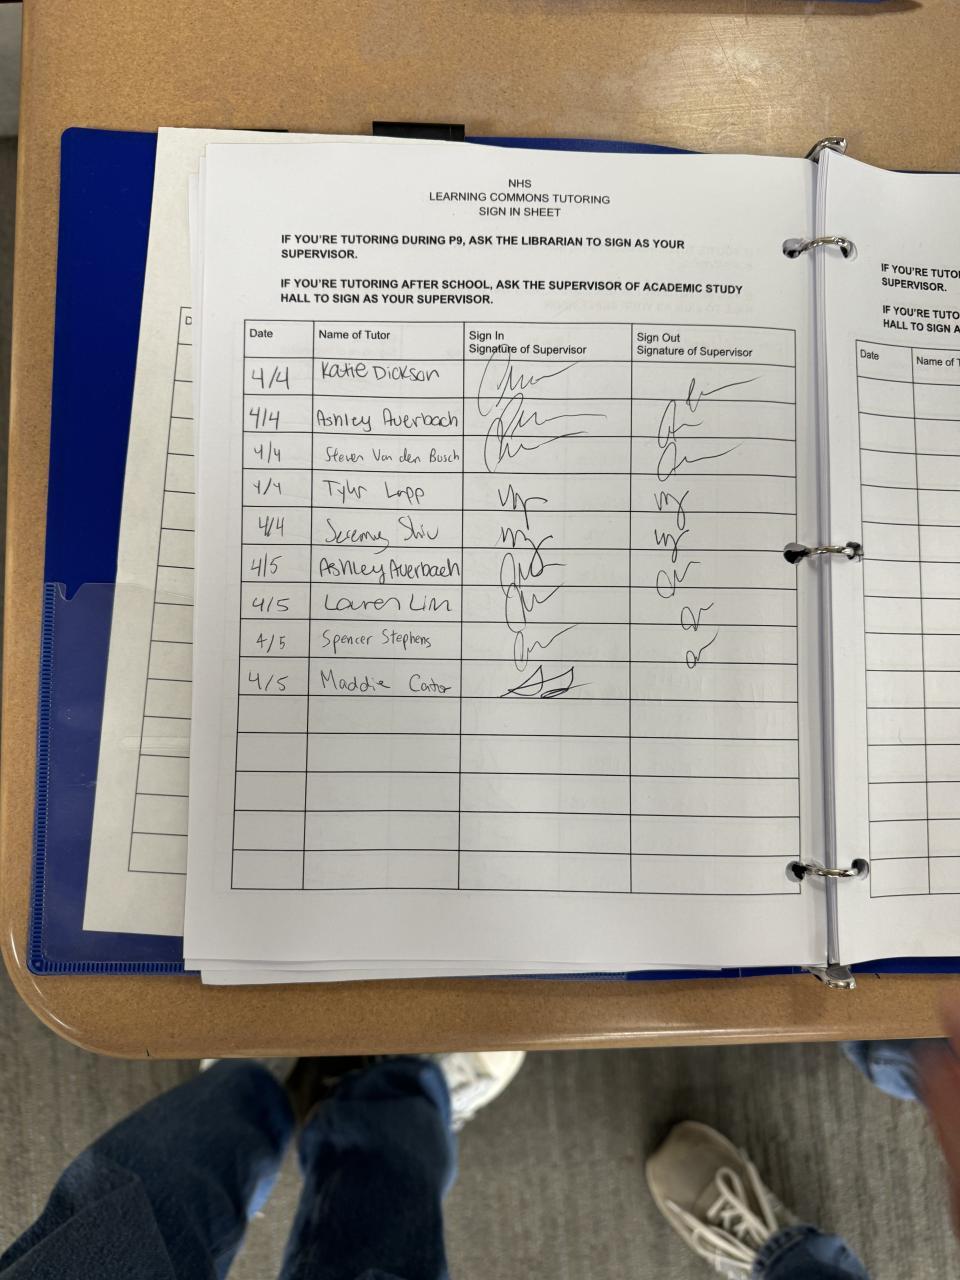 NHS
LEARNING COMMONS TUTORING
SIGN IN SHEET
IF YOU'RE TUTORING DURING P9, ASK THE LIBRARIAN TO SIGN AS YOUR
SUPERVISOR.
IF YOU'RE TUTORING AFTER SCHOOL, ASK THE SUPERVISOR OF ACADEMIC STUDY
HALL TO SIGN AS YOUR SUPERVISOR.
Date Name of Tutor Sign In Signature of Supervisor Sign Out Signature of Supervisor
4/4 Katie Dickson
4/4 Ashley Auerbach
4/4 Steven Van den Bosch
4/4 Tyler Lapp
4/4 Jeremy Shiu
4/5 Ashley Auerbach
4/5 Lauren Lim
4/5 Spencer Stephens
4/5 Maddie
IF YOU'RE TUTO
SUPERVISOR.
IF YOU'RE TUTO
HALL TO SIGN A
Date Name of T
D